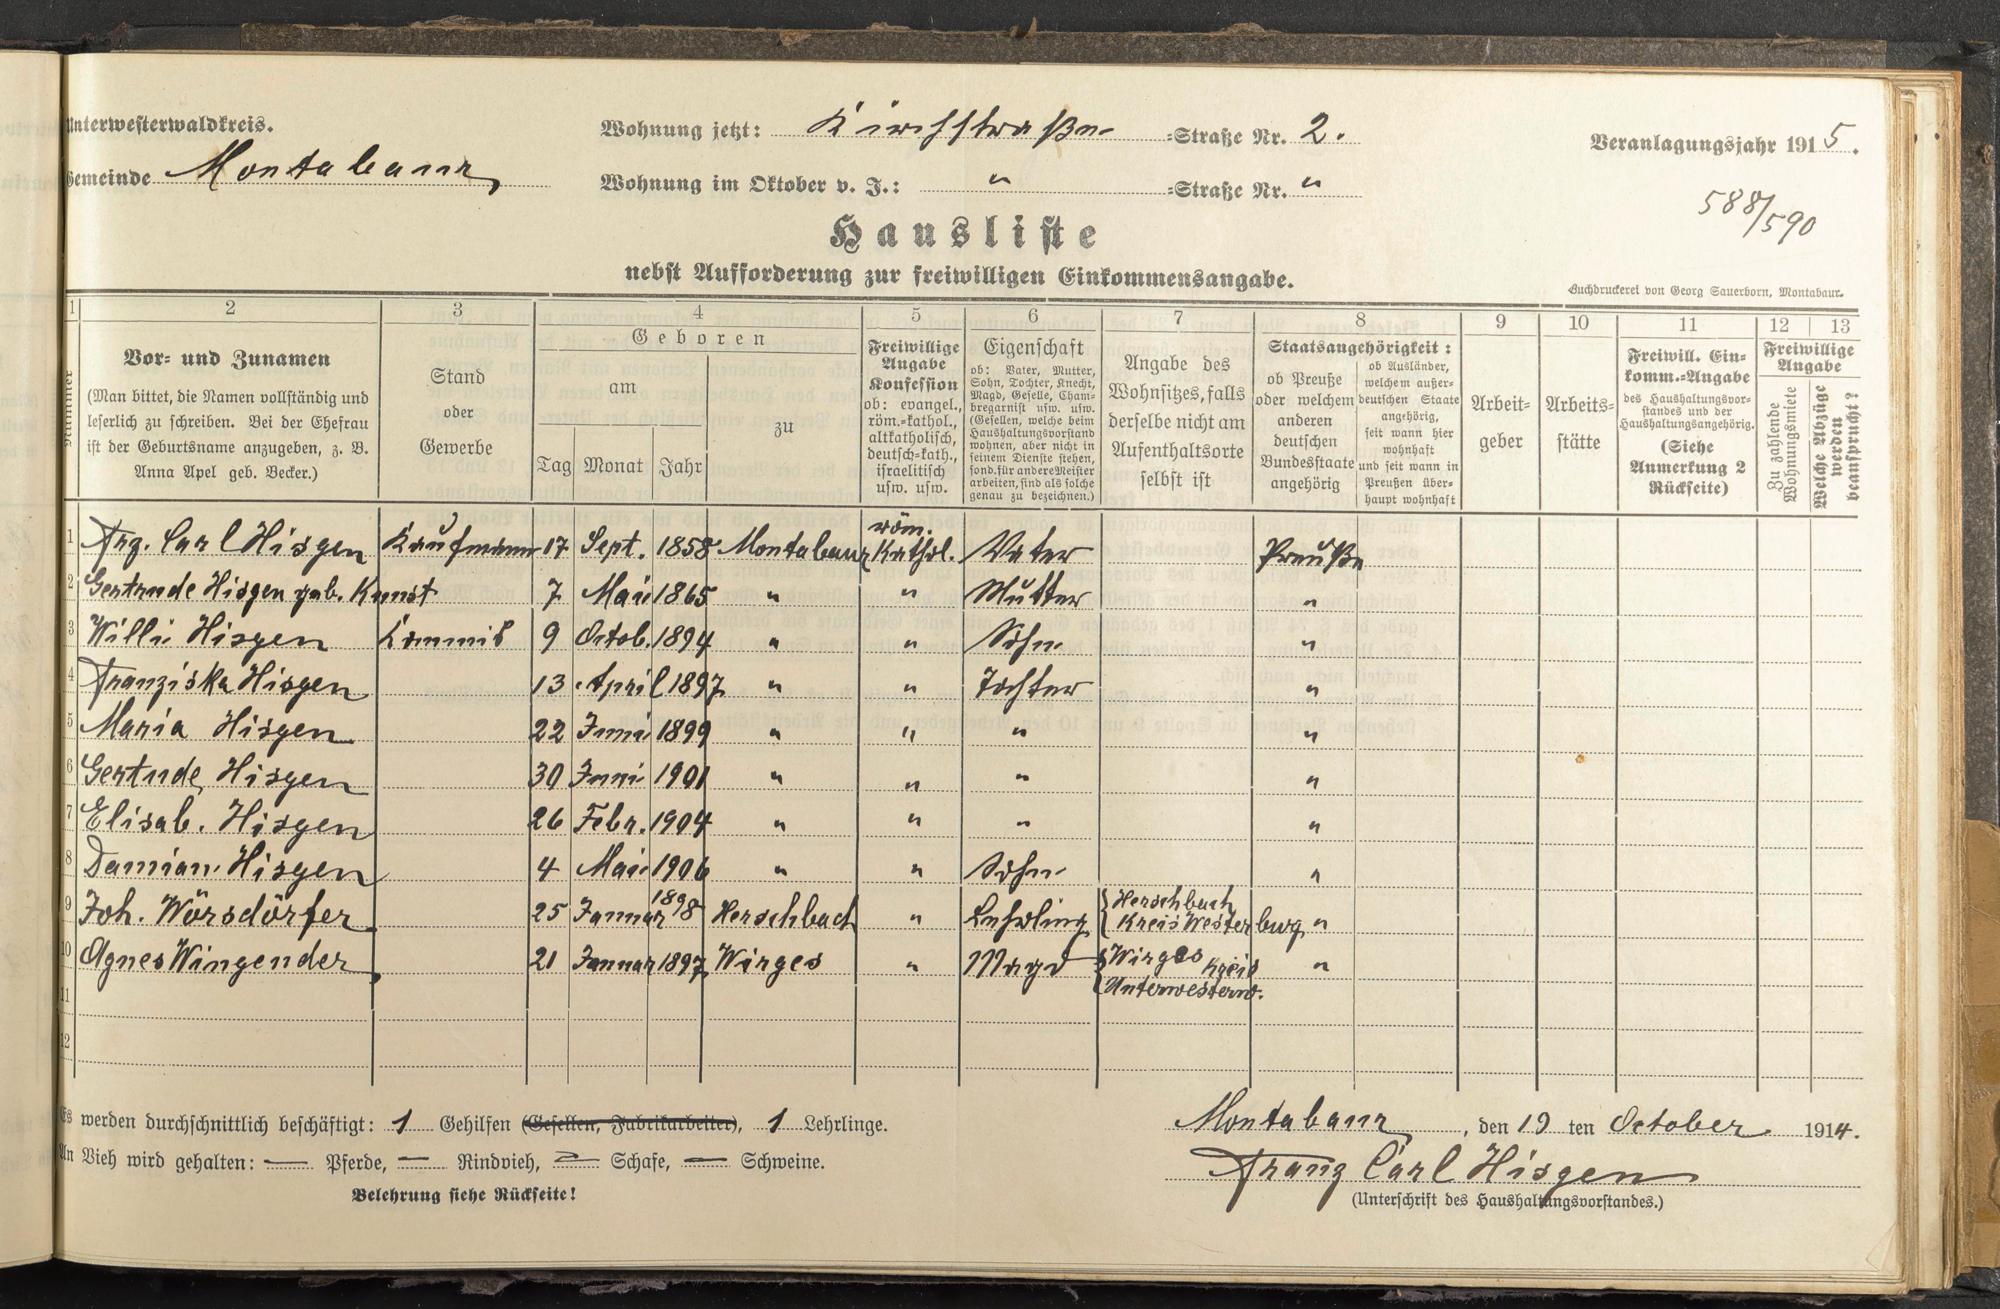 Unterwesterwaldkreis.
Gemeinde Montabaur
Wohnung jetzt: Kirchstraße =Straße Nr. 2.
Wohnung im Oktober v. J.: " =Straße Nr. "
Veranlagungsjahr 1915.
588/590
Hausliste
nebst Aufforderung zur freiwilligen Einkommensangabe.
Buchdruckerei von Georg Sauerborn, Montabaur.
1 2 3 4 5 6 7 8 9 10 11 12 13
Nummer
Vor= und Zunamen
(Man bittet, die Namen vollständig und
leserlich zu schreiben. Bei der Ehefrau
ist der Geburtsname anzugeben, z. B.
Anna Apel geb. Becker.)
Stand
oder
Gewerbe
Geboren
am
Tag Monat Jahr
zu
Freiwillige
Angabe
Konfession
ob: evangel.,
röm.=kathol.,
altkatholisch,
deutsch=kath.,
israelitisch
usw. usw.
Eigenschaft
ob: Vater, Mutter,
Sohn, Tochter, Knecht,
Magd, Geselle, Cham=
bregarnist usw. usw.
(Gesellen, welche beim
Haushaltungsvorstand
wohnen, aber nicht in
seinem Dienste stehen,
sond. für andere Meister
arbeiten, sind als solche
genau zu bezeichnen.)
Angabe des
Wohnsitzes, falls
derselbe nicht am
Aufenthaltsorte
selbst ist
Staatsangehörigkeit:
ob Preuße
oder welchem
anderen
deutschen
Bundesstaate
angehörig
ob Ausländer,
welchem außer=
deutschen Staate
angehörig,
seit wann hier
wohnhaft
und seit wann in
Preußen über=
haupt wohnhaft
Arbeit=
geber
Arbeits=
stätte
Freiwill. Ein=
komm.=Angabe
des Haushaltungsvor=
standes und der
Haushaltungsangehörig.
(Siehe
Anmerkung 2
Rückseite)
Freiwillige
Angabe
Zu zahlende
Wohnungsmiete
Welche Abzüge
werden
beansprucht?
1 Frz. Carl Hisgen Kaufmann 17 Sept. 1858 Montabaur röm. Kathol. Vater Preuße
2 Gertrude Hisgen geb. Kunst 7 Mai 1865 " " Mutter "
3 Willi Hisgen Commis 9 Octob. 1894 " " Sohn "
4 Franziska Hisgen 13 April 1897 " " Tochter "
5 Maria Hisgen 22 Juni 1899 " " " "
6 Gertrude Hisgen 30 Juni 1901 " " " "
7 Elisab. Hisgen 26 Febr. 1904 " " " "
8 Damian Hisgen 4 Mai 1906 " " Sohn "
9 Joh. Wörsdörfer 25 Januar 1898 Herschbach " Lehrling Herschbach Kreis Westerburg "
10 Agnes Wingender 21 Januar 1897 Wirges " Magd Wirges Kreis Unterwesterw. "
11
12
Es werden durchschnittlich beschäftigt: 1 Gehilfen (Gesellen, Fabrikarbeiter), 1 Lehrlinge.
An Vieh wird gehalten: — Pferde, — Rindvieh, — Schafe, — Schweine.
Belehrung siehe Rückseite!
Montabaur, den 19 ten October 1914.
Franz Carl Hisgen
(Unterschrift des Haushaltungsvorstandes.)